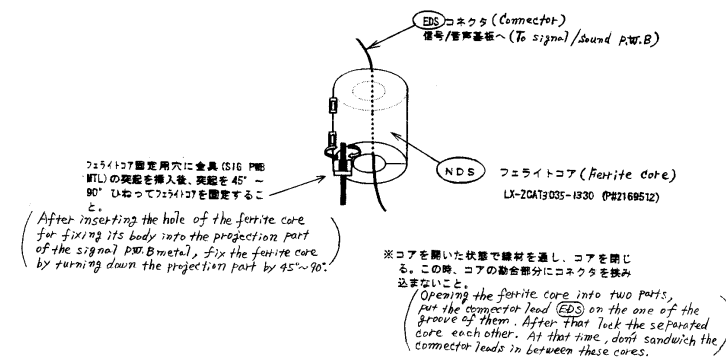 EDS コネクタ (Connector)
信号/音声基板へ (To signal/sound P.W.B)
フェライトコア固定用穴に金具(SIG PWB
MTL)の突起を挿入後、突起を45°~
90°ひねってフェライトコアを固定するこ
と。
(After inserting the hole of the ferrite core
for fixing its body into the projection part
of the signal P.W.B metal, fix the ferrite core
by turning down the projection part by 45°~90°.)
NDS フェライトコア (Ferrite core)
LX-ZCAT3035-1330 (P#2169512)
※コアを開いた状態で線材を通し、コアを閉じ
る。この時、コアの勘合部分にコネクタを挟み
込まないこと。
(Opening the ferrite core into two parts,
put the connector lead EDS on the one of the
groove of them. After that lock the separated
core each other. At that time, don't sandwich the
connector leads in between these cores.)